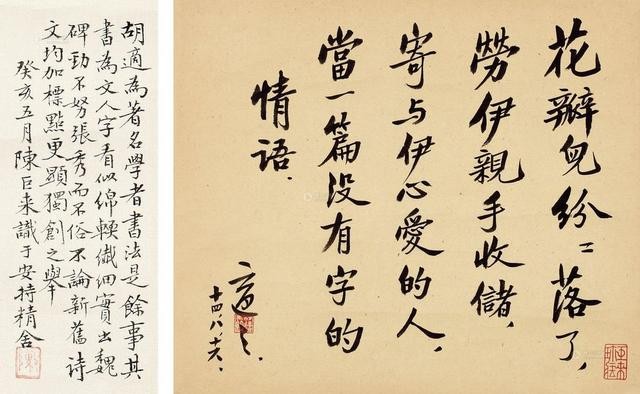 花瓣兒紛〻落了，
勞伊親手收儲，
寄与伊心愛的人，
當一篇没有字的
情語．
適之．
十四、八、十六、
胡適為著名學者書法是餘事其
書為文人字看似綿輭纖細實出魏
碑勁不努張秀而不俗不論新舊詩
文均加標點更顯獨創之舉
癸亥五月陳巨来識于安持精舍